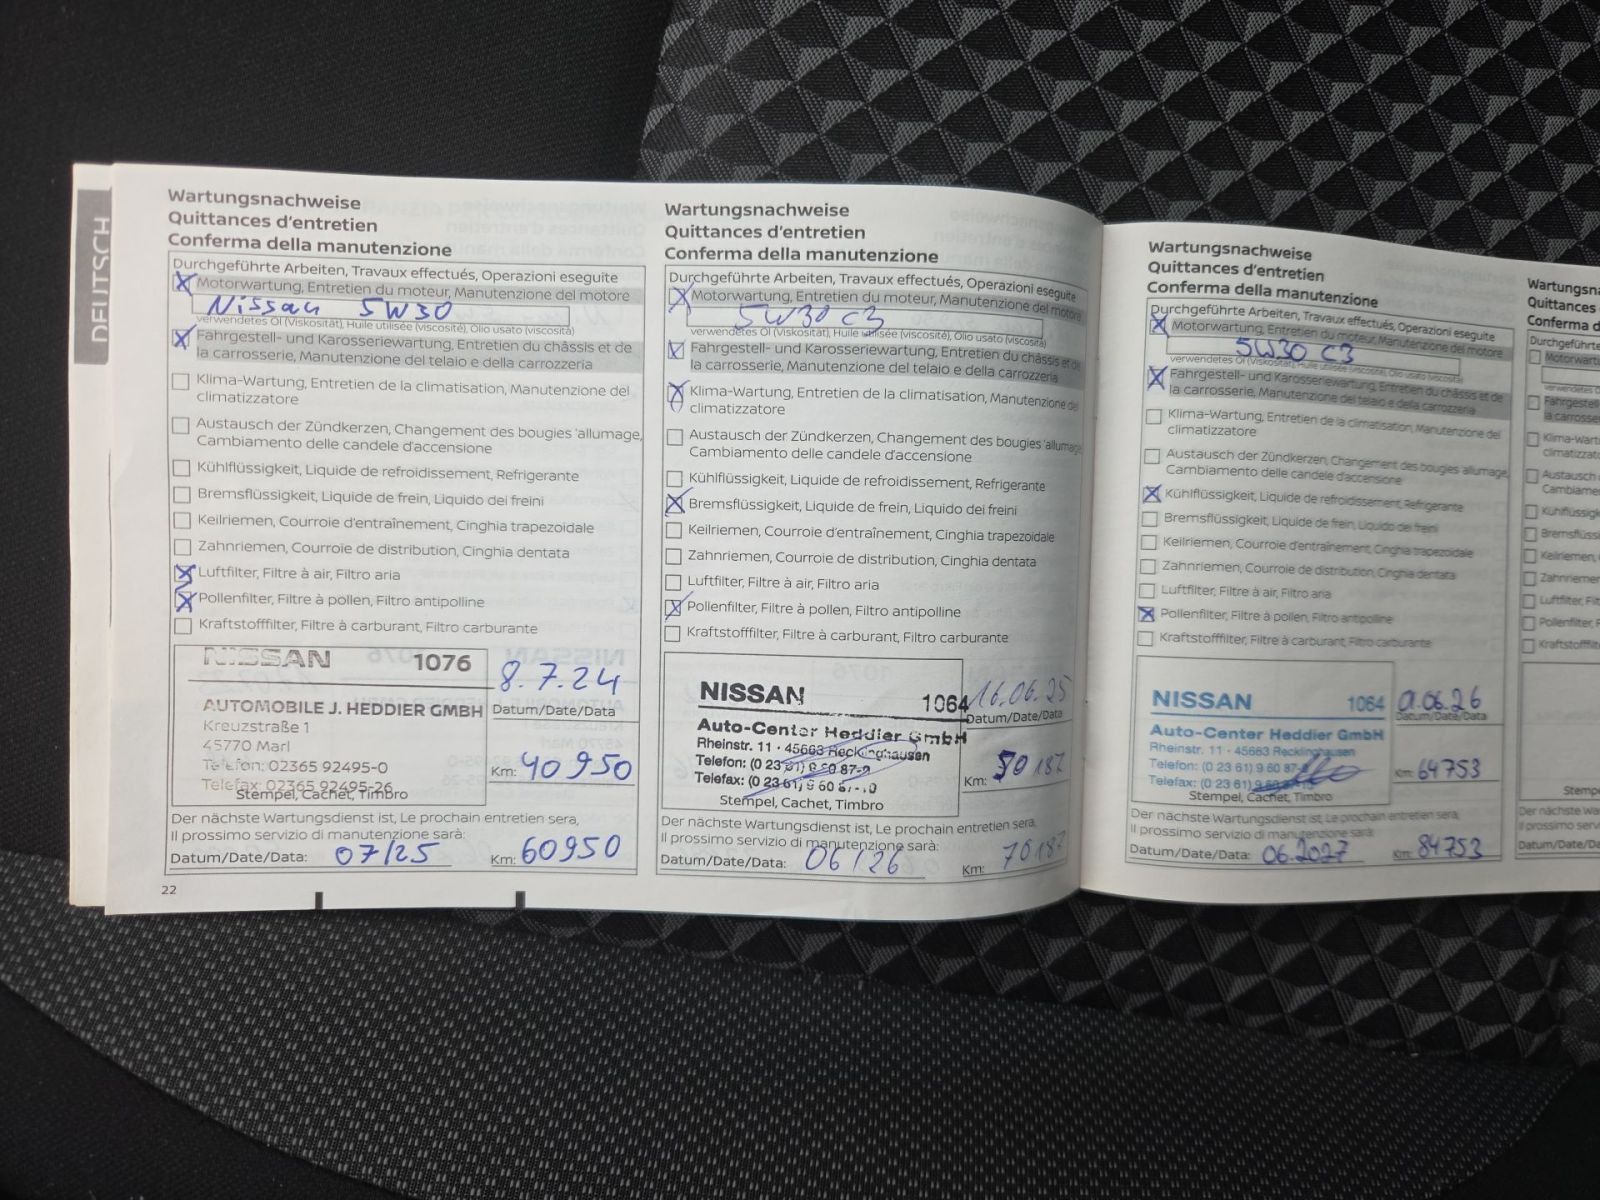 DEUTSCH
Wartungsnachweise
Quittances d'entretien
Conferma della manutenzione
Durchgeführte Arbeiten, Travaux effectués, Operazioni eseguite
Motorwartung, Entretien du moteur, Manutenzione del motore
Nissan 5W30
verwendetes Öl (Viskosität), Huile utilisée (viscosité), Olio usato (viscosità)
Fahrgestell- und Karosseriewartung, Entretien du châssis et de
la carrosserie, Manutenzione del telaio e della carrozzeria
Klima-Wartung, Entretien de la climatisation, Manutenzione del
climatizzatore
Austausch der Zündkerzen, Changement des bougies 'allumage,
Cambiamento delle candele d'accensione
Kühlflüssigkeit, Liquide de refroidissement, Refrigerante
Bremsflüssigkeit, Liquide de frein, Liquido dei freini
Keilriemen, Courroie d'entraînement, Cinghia trapezoidale
Zahnriemen, Courroie de distribution, Cinghia dentata
Luftfilter, Filtre à air, Filtro aria
Pollenfilter, Filtre à pollen, Filtro antipolline
Kraftstofffilter, Filtre à carburant, Filtro carburante
NISSAN 1076
AUTOMOBILE J. HEDDIER GMBH
Kreuzstraße 1
45770 Marl
Telefon: 02365 92495-0
Telefax: 02365 92495-26
Stempel, Cachet, Timbro
8.7.24
Datum/Date/Data
Km: 40950
Der nächste Wartungsdienst ist, Le prochain entretien sera,
Il prossimo servizio di manutenzione sarà:
Datum/Date/Data: 07/25 Km: 60950
22
Wartungsnachweise
Quittances d'entretien
Conferma della manutenzione
Durchgeführte Arbeiten, Travaux effectués, Operazioni eseguite
Motorwartung, Entretien du moteur, Manutenzione del motore
5W30 C3
verwendetes Öl (Viskosität), Huile utilisée (viscosité), Olio usato (viscosità)
Fahrgestell- und Karosseriewartung, Entretien du châssis et de
la carrosserie, Manutenzione del telaio e della carrozzeria
Klima-Wartung, Entretien de la climatisation, Manutenzione del
climatizzatore
Austausch der Zündkerzen, Changement des bougies 'allumage,
Cambiamento delle candele d'accensione
Kühlflüssigkeit, Liquide de refroidissement, Refrigerante
Bremsflüssigkeit, Liquide de frein, Liquido dei freini
Keilriemen, Courroie d'entraînement, Cinghia trapezoidale
Zahnriemen, Courroie de distribution, Cinghia dentata
Luftfilter, Filtre à air, Filtro aria
Pollenfilter, Filtre à pollen, Filtro antipolline
Kraftstofffilter, Filtre à carburant, Filtro carburante
NISSAN 1064
Auto-Center Heddier GmbH
Rheinstr. 11 · 45663 Recklinghausen
Telefon: (0 23 61) 9 60 87-0
Telefax: (0 23 61) 9 60 87-10
Stempel, Cachet, Timbro
16.06.25
Datum/Date/Data
Km: 50187
Der nächste Wartungsdienst ist, Le prochain entretien sera,
Il prossimo servizio di manutenzione sarà:
Datum/Date/Data: 06/26 Km: 70187
Wartungsnachweise
Quittances d'entretien
Conferma della manutenzione
Durchgeführte Arbeiten, Travaux effectués, Operazioni eseguite
Motorwartung, Entretien du moteur, Manutenzione del motore
5W30 C3
verwendetes Öl (Viskosität), Huile utilisée (viscosité), Olio usato (viscosità)
Fahrgestell- und Karosseriewartung, Entretien du châssis et de
la carrosserie, Manutenzione del telaio e della carrozzeria
Klima-Wartung, Entretien de la climatisation, Manutenzione del
climatizzatore
Austausch der Zündkerzen, Changement des bougies 'allumage,
Cambiamento delle candele d'accensione
Kühlflüssigkeit, Liquide de refroidissement, Refrigerante
Bremsflüssigkeit, Liquide de frein, Liquido dei freini
Keilriemen, Courroie d'entraînement, Cinghia trapezoidale
Zahnriemen, Courroie de distribution, Cinghia dentata
Luftfilter, Filtre à air, Filtro aria
Pollenfilter, Filtre à pollen, Filtro antipolline
Kraftstofffilter, Filtre à carburant, Filtro carburante
NISSAN 1064
Auto-Center Heddier GmbH
Rheinstr. 11 · 45663 Recklinghausen
Telefon: (0 23 61) 9 60 87-0
Telefax: (0 23 61) 9 60 87-10
Stempel, Cachet, Timbro
06.26
Datum/Date/Data
Km: 64753
Der nächste Wartungsdienst ist, Le prochain entretien sera,
Il prossimo servizio di manutenzione sarà:
Datum/Date/Data: 06.2027 Km: 84753
Wartungsna
Quittances
Conferma d
Durchgeführte
Motorwart
Fahrgestell-
la carrosse
Klima-Wart
climatizzat
Austausch
Cambiame
Kühlflüssig
Bremsflüss
Keilriemen
Zahnriemen
Luftfilter, F
Pollenfilter, F
Kraftstofff
Stemp
Der nächste War
Il prossimo serviz
Datum/Date/Da